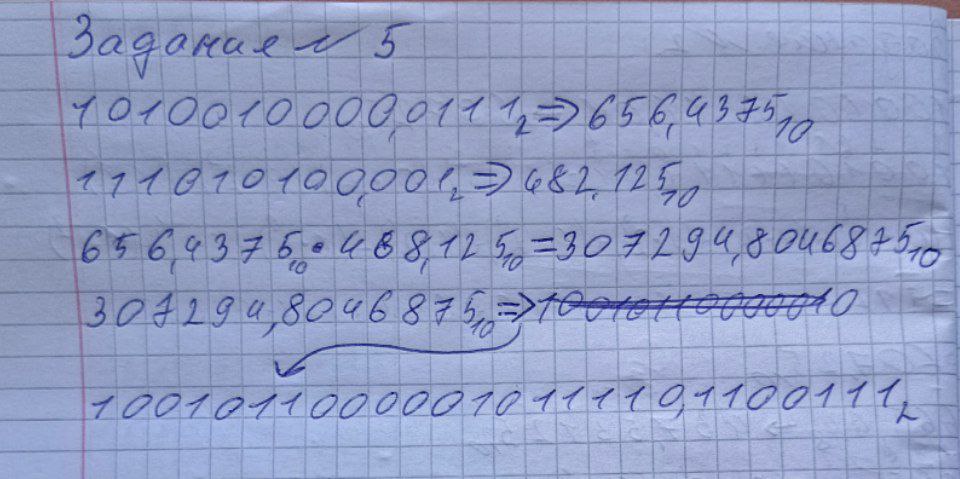 Задания № 5
1010010000,0111₂ => 656,4375₁₀
111010100,001₂ => 482,125₁₀
656,4375₁₀ • 468,125₁₀ = 307294,8046875₁₀
307294,8046875₁₀ => 10010110000010
1001011000001011110,1100111₂